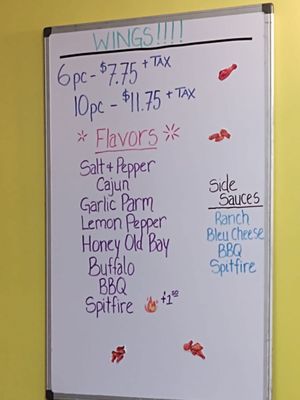 WINGS!!!!
6pc - $7.75 + TAX
10pc - $11.75 + TAX
Flavors
Salt & Pepper
Cajun
Garlic Parm
Lemon Pepper
Honey Old Bay
Buffalo
BBQ
Spitfire +1.50
Side
Sauces
Ranch
Bleu Cheese
BBQ
Spitfire